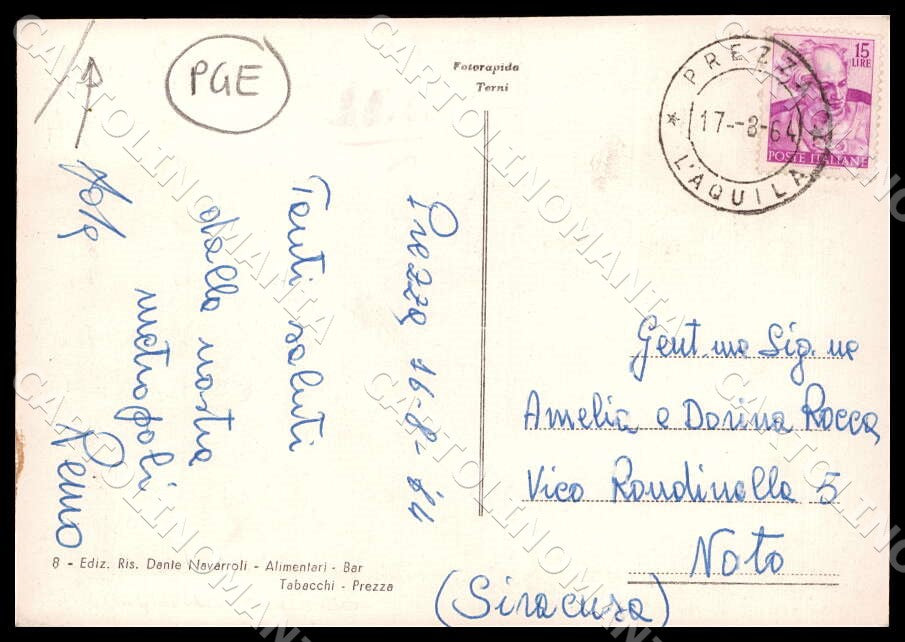 PGE
Fotorapida
Terni
PREZZA
17-8-64
L'AQUILA
15
LIRE
POSTE ITALIANE
Prezza 16-8-64
Tanti saluti
dalla nostra
metropoli
Remo
Gent.me Sig.ne
Amelia e Dorina Rocca
Vico Rondinella 5
Noto
(Siracusa)
8 - Ediz. Ris. Dante Navarroli - Alimentari - Bar
Tabacchi - Prezza
CARTOLINOMANIA